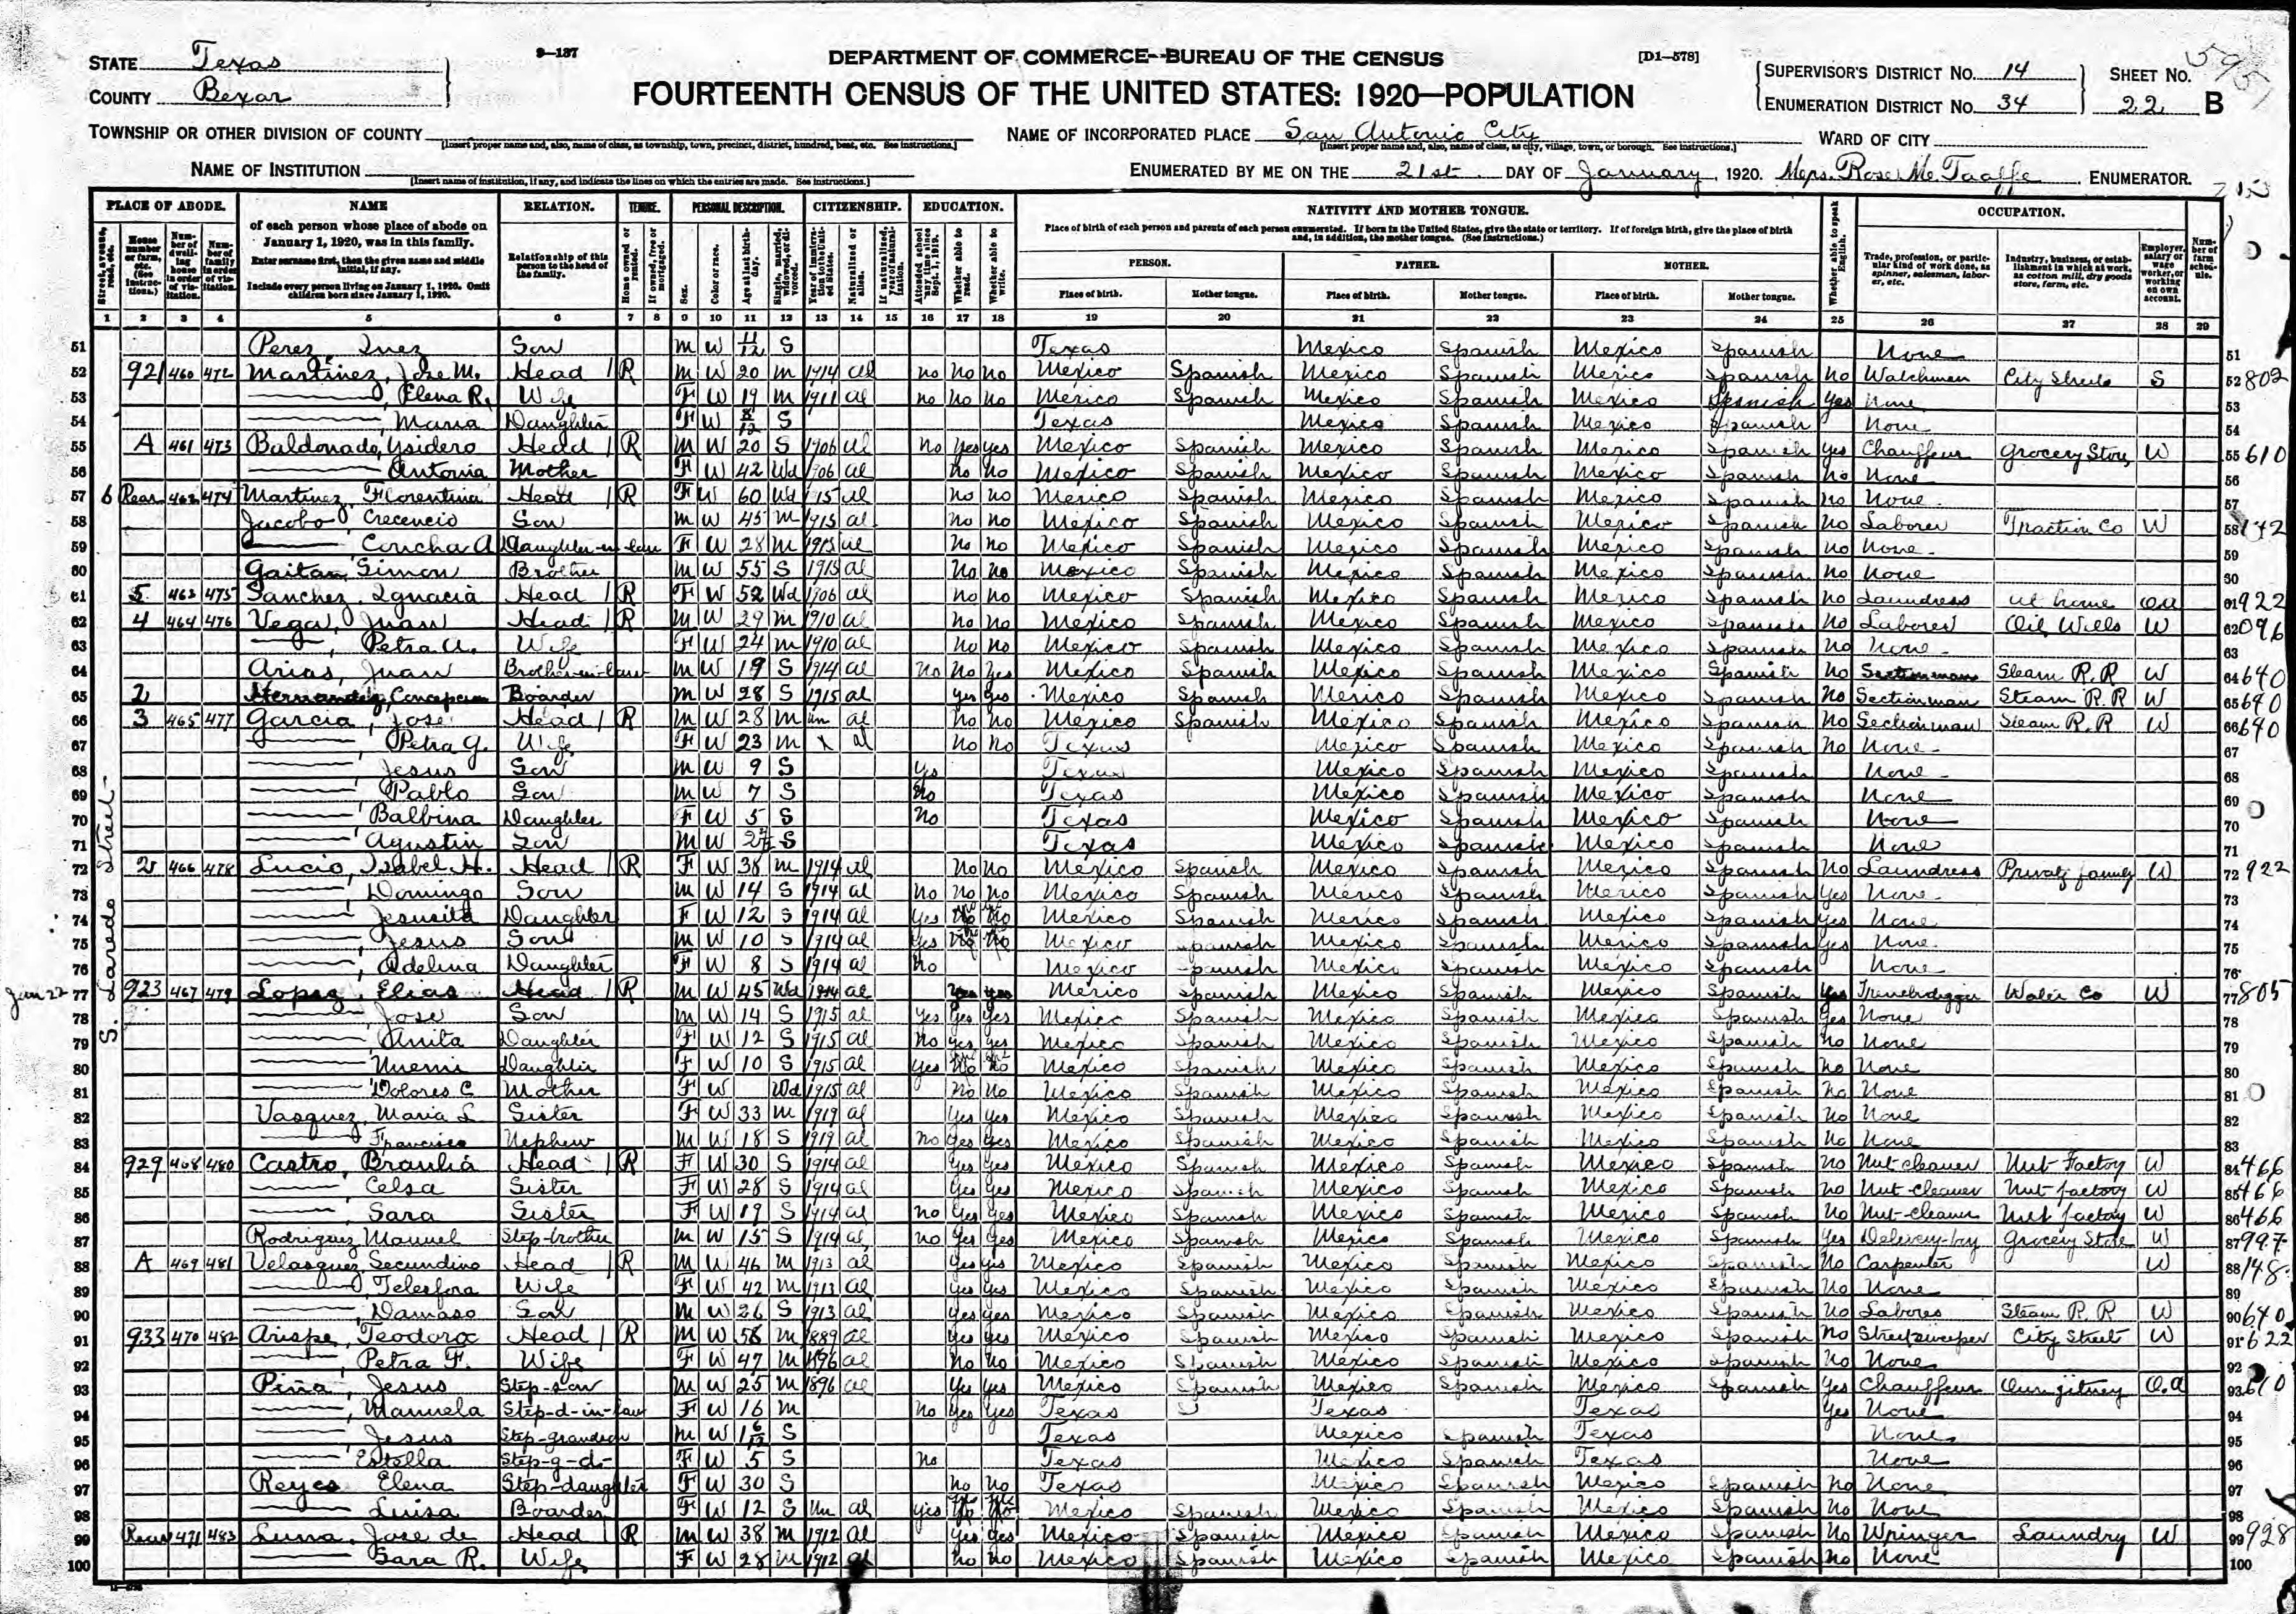 STATE Texas
COUNTY Bexar
9—137
DEPARTMENT OF COMMERCE--BUREAU OF THE CENSUS
[D1—578]
FOURTEENTH CENSUS OF THE UNITED STATES: 1920—POPULATION
SUPERVISOR'S DISTRICT No. 14
ENUMERATION DISTRICT No. 34
SHEET No. 22 B
TOWNSHIP OR OTHER DIVISION OF COUNTY
[Insert proper name and, also, name of class, as township, town, precinct, district, hundred, beat, etc. See instructions.]
NAME OF INCORPORATED PLACE San Antonio City
[Insert proper name and, also, name of class, as city, village, town, or borough. See instructions.]
WARD OF CITY
NAME OF INSTITUTION
[Insert name of institution, if any, and indicate the lines on which the entries are made. See instructions.]
ENUMERATED BY ME ON THE 21st DAY OF January, 1920. Mrs. Rose Mc Taaffe ENUMERATOR.
PLACE OF ABODE. NAME RELATION. TENURE. PERSONAL DESCRIPTION. CITIZENSHIP. EDUCATION. NATIVITY AND MOTHER TONGUE. OCCUPATION.
of each person whose place of abode on January 1, 1920, was in this family.
Enter surname first, then the given name and middle initial, if any.
Include every person living on January 1, 1920. Omit children born since January 1, 1920.
Relationship of this person to the head of the family.
Place of birth of each person and parents of each person enumerated. If born in the United States, give the state or territory. If of foreign birth, give the place of birth and, in addition, the mother tongue. (See instructions.)
PERSON. FATHER. MOTHER.
Place of birth. Mother tongue. Place of birth. Mother tongue. Place of birth. Mother tongue.
Whether able to speak English.
Trade, profession, or particular kind of work done, as spinner, salesman, laborer, etc.
Industry, business, or establishment in which at work, as cotton mill, dry goods store, farm, etc.
Employer, salary or wage worker, or working on own account.
Number of farm schedule.
1 2 3 4 5 6 7 8 9 10 11 12 13 14 15 16 17 18 19 20 21 22 23 24 25 26 27 28 29
S. Laredo Street
51 Perez, Inez Son M W 11/12 S Texas Mexico Spanish Mexico Spanish None 51
52 921 460 472 Martinez, Jose M. Head R M W 20 M 1914 al no No No Mexico Spanish Mexico Spanish Mexico Spanish No Watchman City Streets S 52 802
53 —, Elena R. Wife F W 19 M 1911 al no No No Mexico Spanish Mexico Spanish Mexico Spanish Yes None 53
54 —, Maria Daughter F W S Texas Mexico Spanish Mexico Spanish None 54
55 A 461 473 Baldonado, Ysidero Head R M W 20 S 1906 al No Yes Yes Mexico Spanish Mexico Spanish Mexico Spanish Yes Chauffeur Grocery Store W 55 610
56 — Antonia Mother F W 42 Wd 1906 al No No Mexico Spanish Mexico Spanish Mexico Spanish No None 56
57 6 Rear 462 474 Martinez, Florentina Head R F W 60 Wd 1915 al No no Mexico Spanish Mexico Spanish Mexico Spanish No None 57
58 Jacobo, Crecencio Son M W 45 M 1915 al No No Mexico Spanish Mexico Spanish Mexico Spanish No Laborer Traction Co W 58 142
59 —, Concha A Daughter-in-law F W 28 M 1915 al No No Mexico Spanish Mexico Spanish Mexico Spanish No None 59
60 Gaitan, Simon Brother M W 55 S 1915 al No No Mexico Spanish Mexico Spanish Mexico Spanish No None 60
61 5 463 475 Sanchez, Ignacia Head R F W 52 Wd 1906 al No No Mexico Spanish Mexico Spanish Mexico Spanish No Laundress at home oa 61 922
62 4 464 476 Vega, Juan Head R M W 29 M 1910 al No No Mexico Spanish Mexico Spanish Mexico Spanish No Laborer Oil Wells W 62 096
63 —, Petra A. Wife F W 24 M 1910 al No No Mexico Spanish Mexico Spanish Mexico Spanish No None 63
64 Arias, Juan Brother-in-law M W 19 S 1914 al No No Yes Mexico Spanish Mexico Spanish Mexico Spanish No Sectionman Steam R.R W 64 640
65 2 Hernandez, Concepcion Boarder M W 28 S 1915 al Yes Yes Mexico Spanish Mexico Spanish Mexico Spanish No Sectionman Steam R.R W 65 640
66 3 465 477 Garcia, Jose Head R M W 28 M un al No No Mexico Spanish Mexico Spanish Mexico Spanish No Sectionman Steam R.R W 66 640
67 —, Petra G. Wife F W 23 M X al No No Texas Mexico Spanish Mexico Spanish No None 67
68 —, Jesus Son M W 9 S Yes Texas Mexico Spanish Mexico Spanish None 68
69 —, Pablo Son M W 7 S No Texas Mexico Spanish Mexico Spanish None 69
70 —, Balbina Daughter F W 5 S No Texas Mexico Spanish Mexico Spanish None 70
71 —, Agustin Son M W S Texas Mexico Spanish Mexico Spanish None 71
72 2 466 478 Lucio, Isabel H. Head R F W 38 M 1914 al No No Mexico Spanish Mexico Spanish Mexico Spanish No Laundress Private family W 72 922
73 —, Domingo Son M W 14 S 1914 al No No No Mexico Spanish Mexico Spanish Mexico Spanish Yes None 73
74 —, Jesusita Daughter F W 12 S 1914 al Yes No No Mexico Spanish Mexico Spanish Mexico Spanish Yes None 74
75 —, Jesus Son M W 10 S 1914 al Yes No No Mexico Spanish Mexico Spanish Mexico Spanish Yes None 75
76 —, Adelina Daughter F W 8 S 1914 al No Mexico Spanish Mexico Spanish Mexico Spanish None 76
Jan 22
77 923 467 479 Lopez, Elias Head R M W 45 Wd 1914 al Yes Yes Mexico Spanish Mexico Spanish Mexico Spanish Yes Trenchdigger Water Co W 77 805
78 —, Jose Son M W 14 S 1915 al Yes Yes Yes Mexico Spanish Mexico Spanish Mexico Spanish Yes None 78
79 —, Anita Daughter F W 12 S 1915 al No Yes Yes Mexico Spanish Mexico Spanish Mexico Spanish No None 79
80 — Nuemi Daughter F W 10 S 1915 al Yes No No Mexico Spanish Mexico Spanish Mexico Spanish No None 80
81 — Dolores C Mother F W Wd 1915 al No No Mexico Spanish Mexico Spanish Mexico Spanish No None 81
82 Vasquez, Maria L Sister F W 33 M 1919 al Yes Yes Mexico Spanish Mexico Spanish Mexico Spanish No None 82
83 —, Francisco Nephew M W 18 S 1919 al No Yes Yes Mexico Spanish Mexico Spanish Mexico Spanish No None 83
84 929 468 480 Castro, Braulia Head R F W 30 S 1914 al Yes Yes Mexico Spanish Mexico Spanish Mexico Spanish No Nut cleaner Nut Factory W 84 466
85 —, Celsa Sister F W 28 S 1914 al Yes Yes Mexico Spanish Mexico Spanish Mexico Spanish No Nut cleaner Nut factory W 85 466
86 —, Sara Sister F W 19 S 1914 al no Yes Yes Mexico Spanish Mexico Spanish Mexico Spanish No Nut-cleaner Nut factory W 86 466
87 Rodriguez Manuel Step-brother M W 15 S 1914 al no Yes Yes Mexico Spanish Mexico Spanish Mexico Spanish Yes Delivery-boy Grocery Store W 87 997
88 A 469 481 Velasquez, Secundino Head R M W 46 M 1913 al Yes Yes Mexico Spanish Mexico Spanish Mexico Spanish No Carpenter W 88 148
89 —, Telesfora Wife F W 42 M 1913 al Yes Yes Mexico Spanish Mexico Spanish Mexico Spanish No None 89
90 —, Damaso Son M W 26 S 1913 al Yes Yes Mexico Spanish Mexico Spanish Mexico Spanish No Laborer Steam R.R W 90 640
91 933 470 482 Arispe, Teodoro Head R M W 56 M 1889 al Yes Yes Mexico Spanish Mexico Spanish Mexico Spanish No Streetsweeper City Street W 91 622
92 —, Petra F. Wife F W 47 M 1896 al No No Mexico Spanish Mexico Spanish Mexico Spanish No None 92
93 Piña, Jesus Step-son M W 25 M 1896 al Yes Yes Mexico Spanish Mexico Spanish Mexico Spanish Yes Chauffeur Own jitney O.a 93 610
94 —, Manuela Step-d-in-law F W 16 M No Yes Yes Texas Texas Texas Yes None 94
95 —, Jesus Step-grandson M W S Texas Mexico Spanish Texas None 95
96 — Estella Step-g-d- F W 5 S No Texas Mexico Spanish Texas None 96
97 Reyes Elena Step-daughter F W 30 S No No Texas Mexico Spanish Mexico Spanish No None 97
98 — Luisa Boarder F W 12 S Un al Yes Mexico Spanish Mexico Spanish Mexico Spanish No None 98
99 Rear 471 483 Luna, Jose de Head R M W 38 M 1912 al Yes Yes Mexico Spanish Mexico Spanish Mexico Spanish No Wringer Laundry W 99 928
100 — Sara R. Wife F W 28 M 1912 al No No Mexico Spanish Mexico Spanish Mexico Spanish No None 100